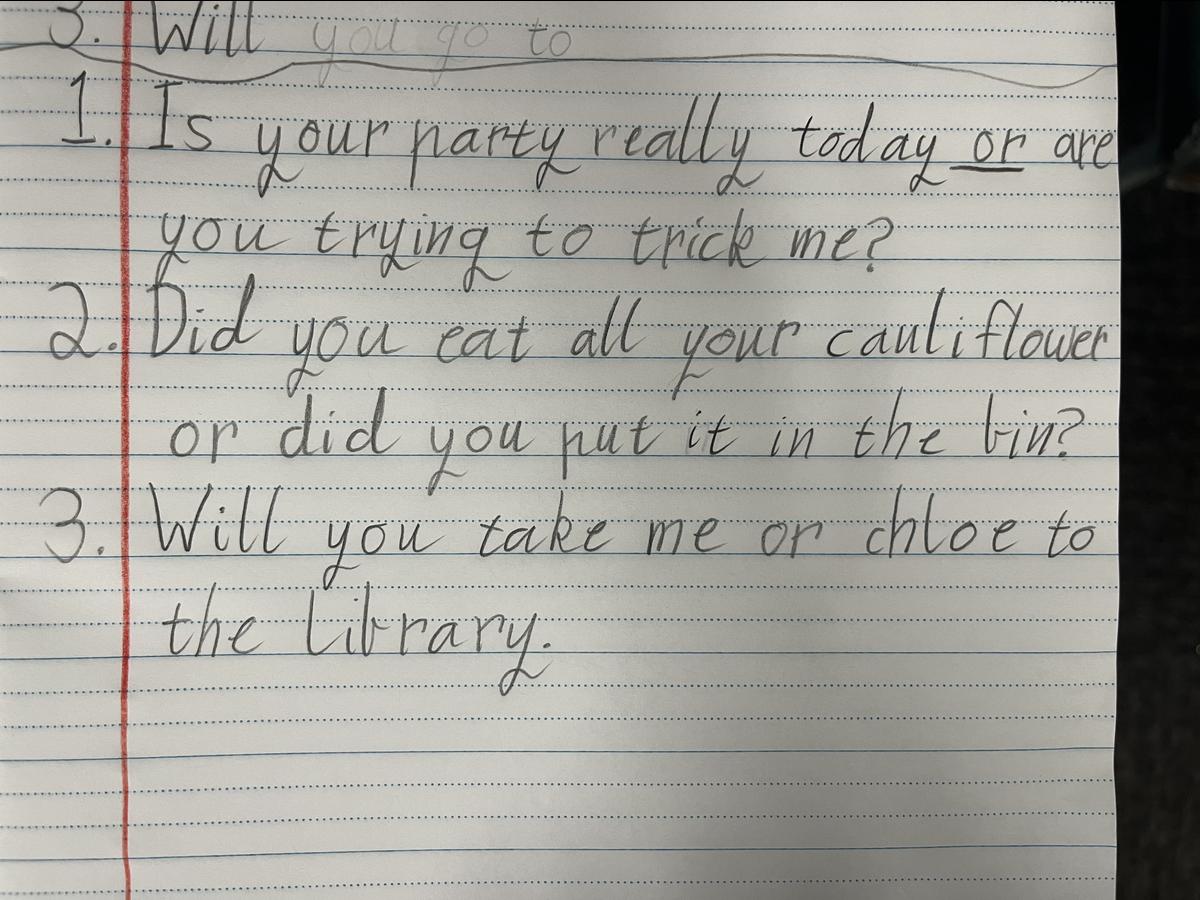 3. Will you go to
1. Is your party really today or are
you trying to trick me?
2. Did you eat all your cauliflower
or did you put it in the bin?
3. Will you take me or chloe to
the library.